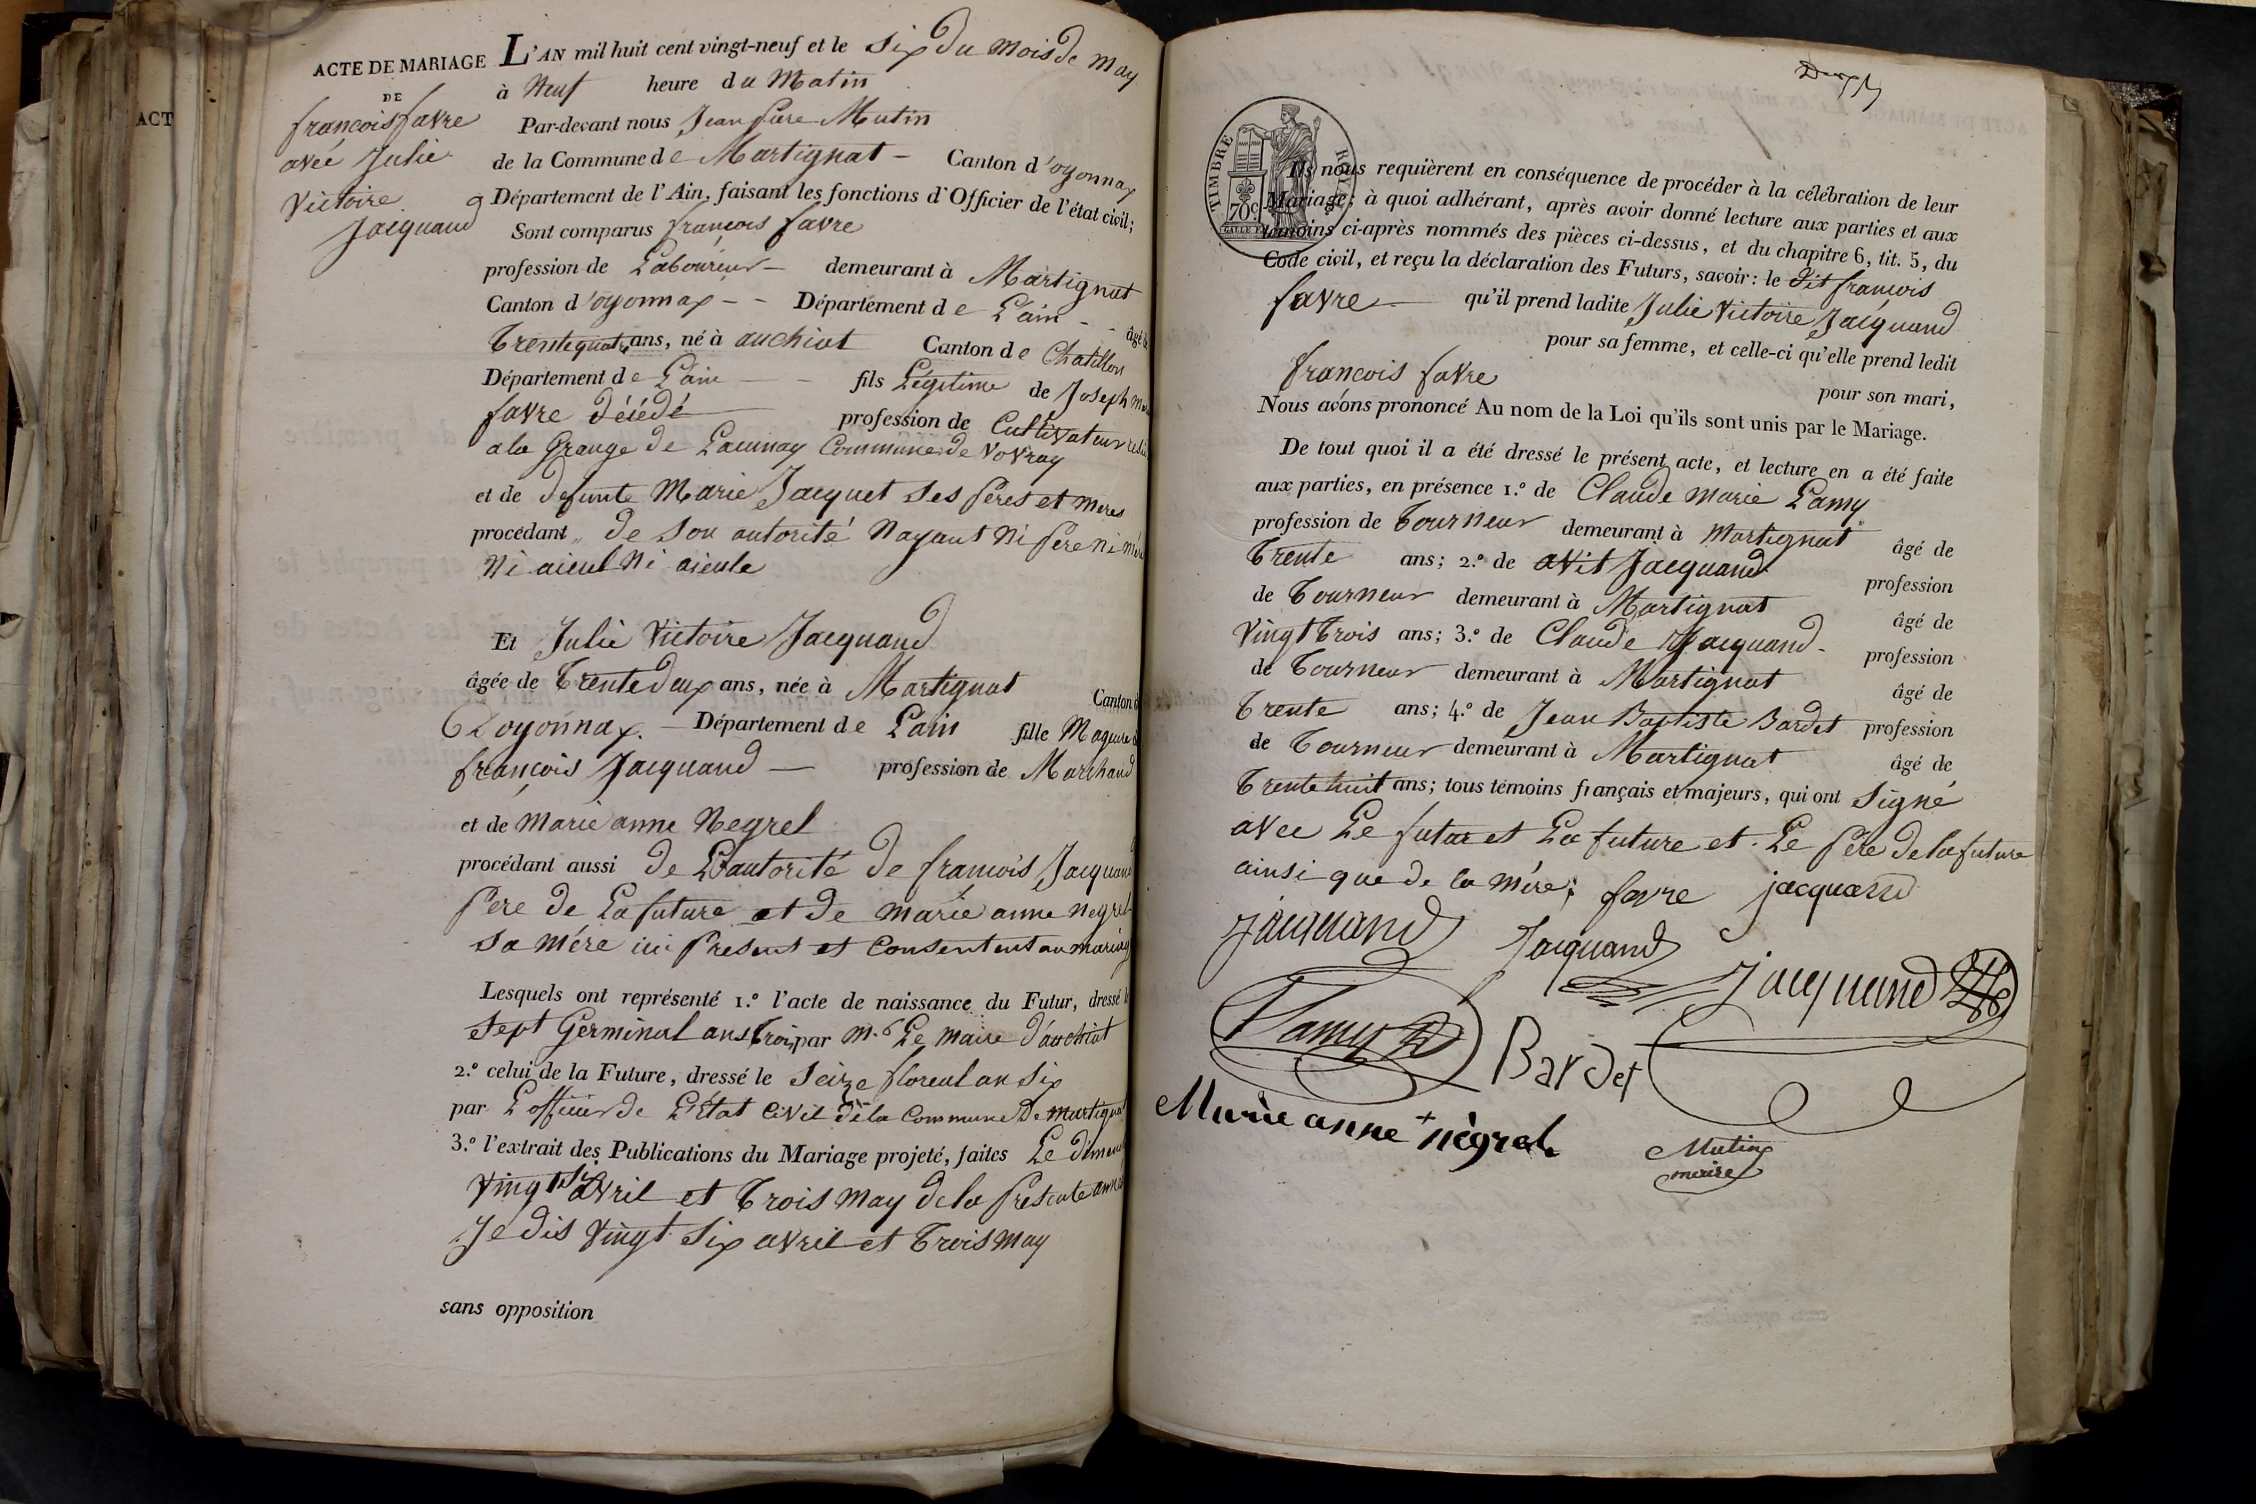 ACT
ACTE DE MARIAGE
DE
françois favre
avéc Julie
Victoire
Jacquand
L'AN mil huit cent vingt-neuf et le Six du mois de may
à Neuf heure du Matin
Par-devant nous Jean Piere Mutin
de la Commune de Martignat - Canton d'oyonnax
Département de l'Ain, faisant les fonctions d'Officier de l'état civil;
Sont comparus françois favre
profession de Laboureur - demeurant à Martignat
Canton d'oyonnax - - Département de L'ain - - âgé de
Trentequatre ans, né à auchiat Canton de Chatillon
Département de L'ain - - fils Légitime de Joseph
favre Décédé profession de Cultivateur
a la Grange de Launay Commune de Vovray
et de defunte Marie Jacquet Ses Peres et meres
procédant de Son autorité Nayant Ni Pere Ni mère
Ni aieul Ni aieule
Et Julie Victoire Jacquand
âgée de Trentedeux ans, née à Martignat Canton d
D'oyonnax. - Département de L'ain fille Majeure de
françois Jacquand - profession de Marchand
et de Marie anne Negrel
procédant aussi de L'autorité de françois Jacquand
Pere de La future et de marie anne negrel
Sa mére ici Present et Consentent au mariage
Lesquels ont représenté 1.º l'acte de naissance du Futur, dressé le
Sept Germinal ans Trois, par Mr Le maire d'auchiat
2.º celui de la Future, dressé le Seize floreal an Six
par L'officier de L'Etat Civil de la Commune De martignat
3.º l'extrait des Publications du Mariage projeté, faites Le dimanche
Vingt Six avril et Trois may de la Presente année
Je dis Vingt Six avril et Trois may
sans opposition
TIMBRE ROYAL
70c
Ils nous requièrent en conséquence de procéder à la célébration de leur
Mariage; à quoi adhérant, après avoir donné lecture aux parties et aux
témoins ci-après nommés des pièces ci-dessus, et du chapitre 6, tit. 5, du
Code civil, et reçu la déclaration des Futurs, savoir: le dit françois
favre qu'il prend ladite Julie Victoire Jacquand
pour sa femme, et celle-ci qu'elle prend ledit
françois favre pour son mari,
Nous avons prononcé Au nom de la Loi qu'ils sont unis par le Mariage.
De tout quoi il a été dressé le présent acte, et lecture en a été faite
aux parties, en présence 1.º de Claude marie Lamy
profession de Tourneur demeurant à Martignat âgé de
Trente ans; 2.º de avit Jacquand profession
de Tourneur demeurant à Martignat âgé de
Vingt Trois ans; 3.º de Claude Jacquand - profession
de Tourneur demeurant à Martignat âgé de
Trente ans; 4.º de Jean Baptiste Bardet profession
de Tourneur demeurant à Martignat âgé de
Trente huit ans; tous témoins français et majeurs, qui ont Signé
avec Le futur et La future et Le Pere de la future
ainsi que de la mére; favre jacquand
Jacquand Jacquand Jacquand
Lamy Bardet
Marie anne nègrel
Mutin
maire